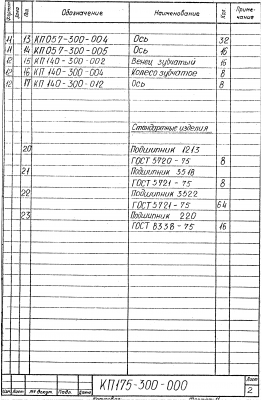 Формат Зона Поз. Обозначение Наименование Кол Приме-
чание
11 13 КП057-300-004 Ось 32
11 14 КП057-300-005 Ось 16
12 15 КП140-300-002 Венец зубчатый 16
12 16 КП140-300-004 Колесо зубчатое 8
12 17 КП140-300-012 Ось 8
Стандартные изделия
20 Подшипник 1213
ГОСТ 5720-75 8
21 Подшипник 3518
ГОСТ 5721-75 8
22 Подшипник 3522
ГОСТ 5721-75 64
23 Подшипник 220
ГОСТ 8338-75 16
КП175-300-000
Лист
2
Изм Лист № докум. Подп. Дата
Копировал Формат 11